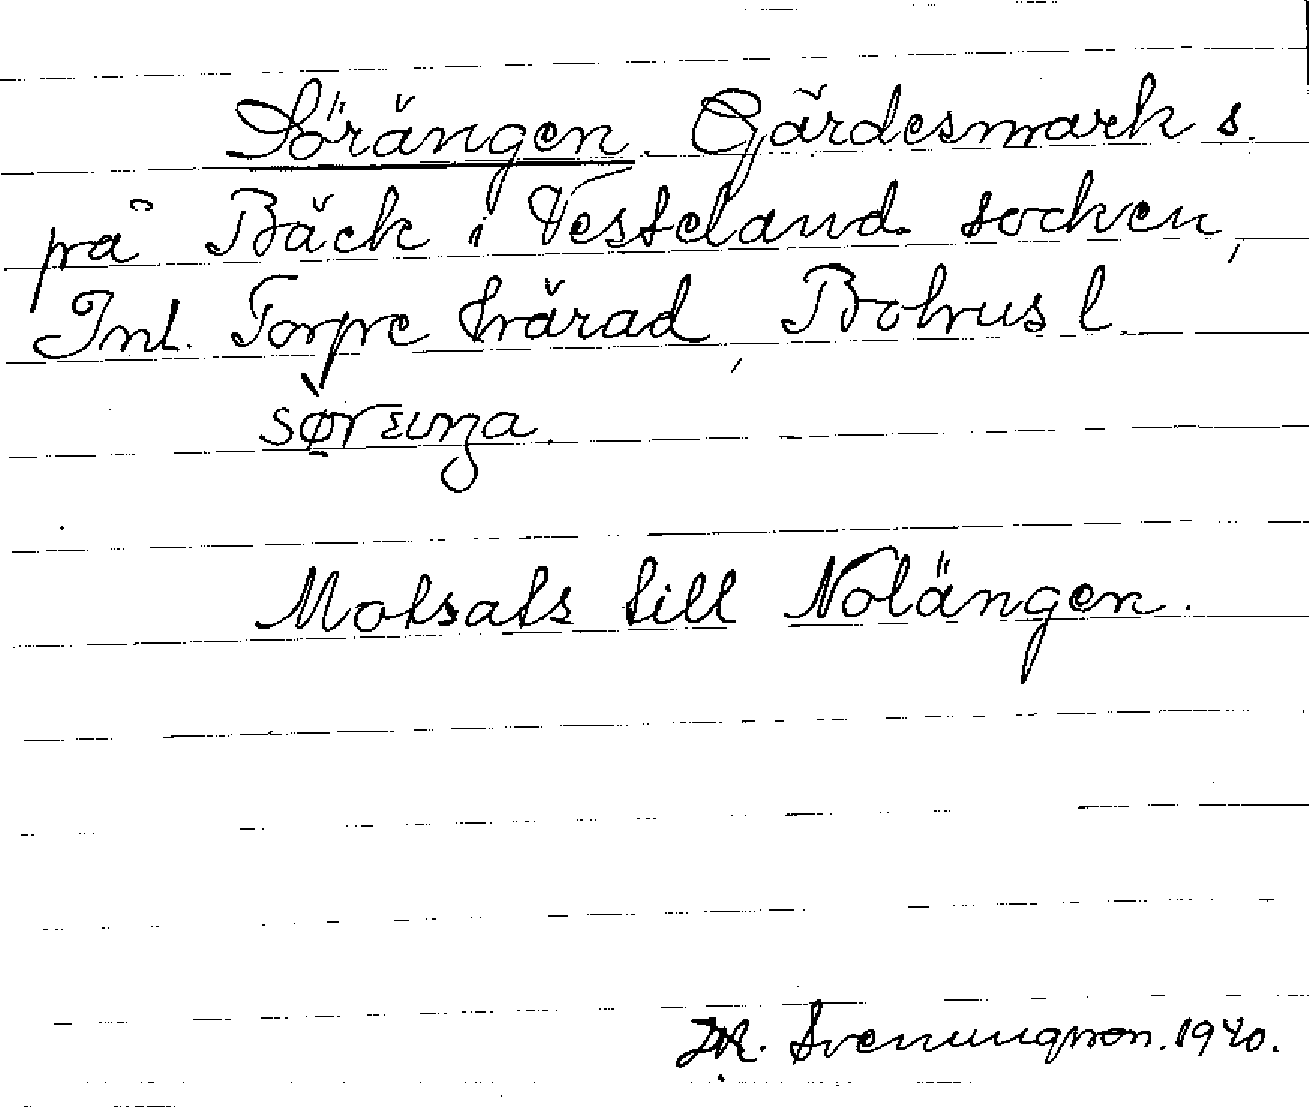 Sörängen. Gärdesmark s.
på Bäck i Vesteland socken,
Inl. Torpe härad, Bohus l.
sørɛŋa.
Motsats till Nolängen.
Svenungsson. 1940.